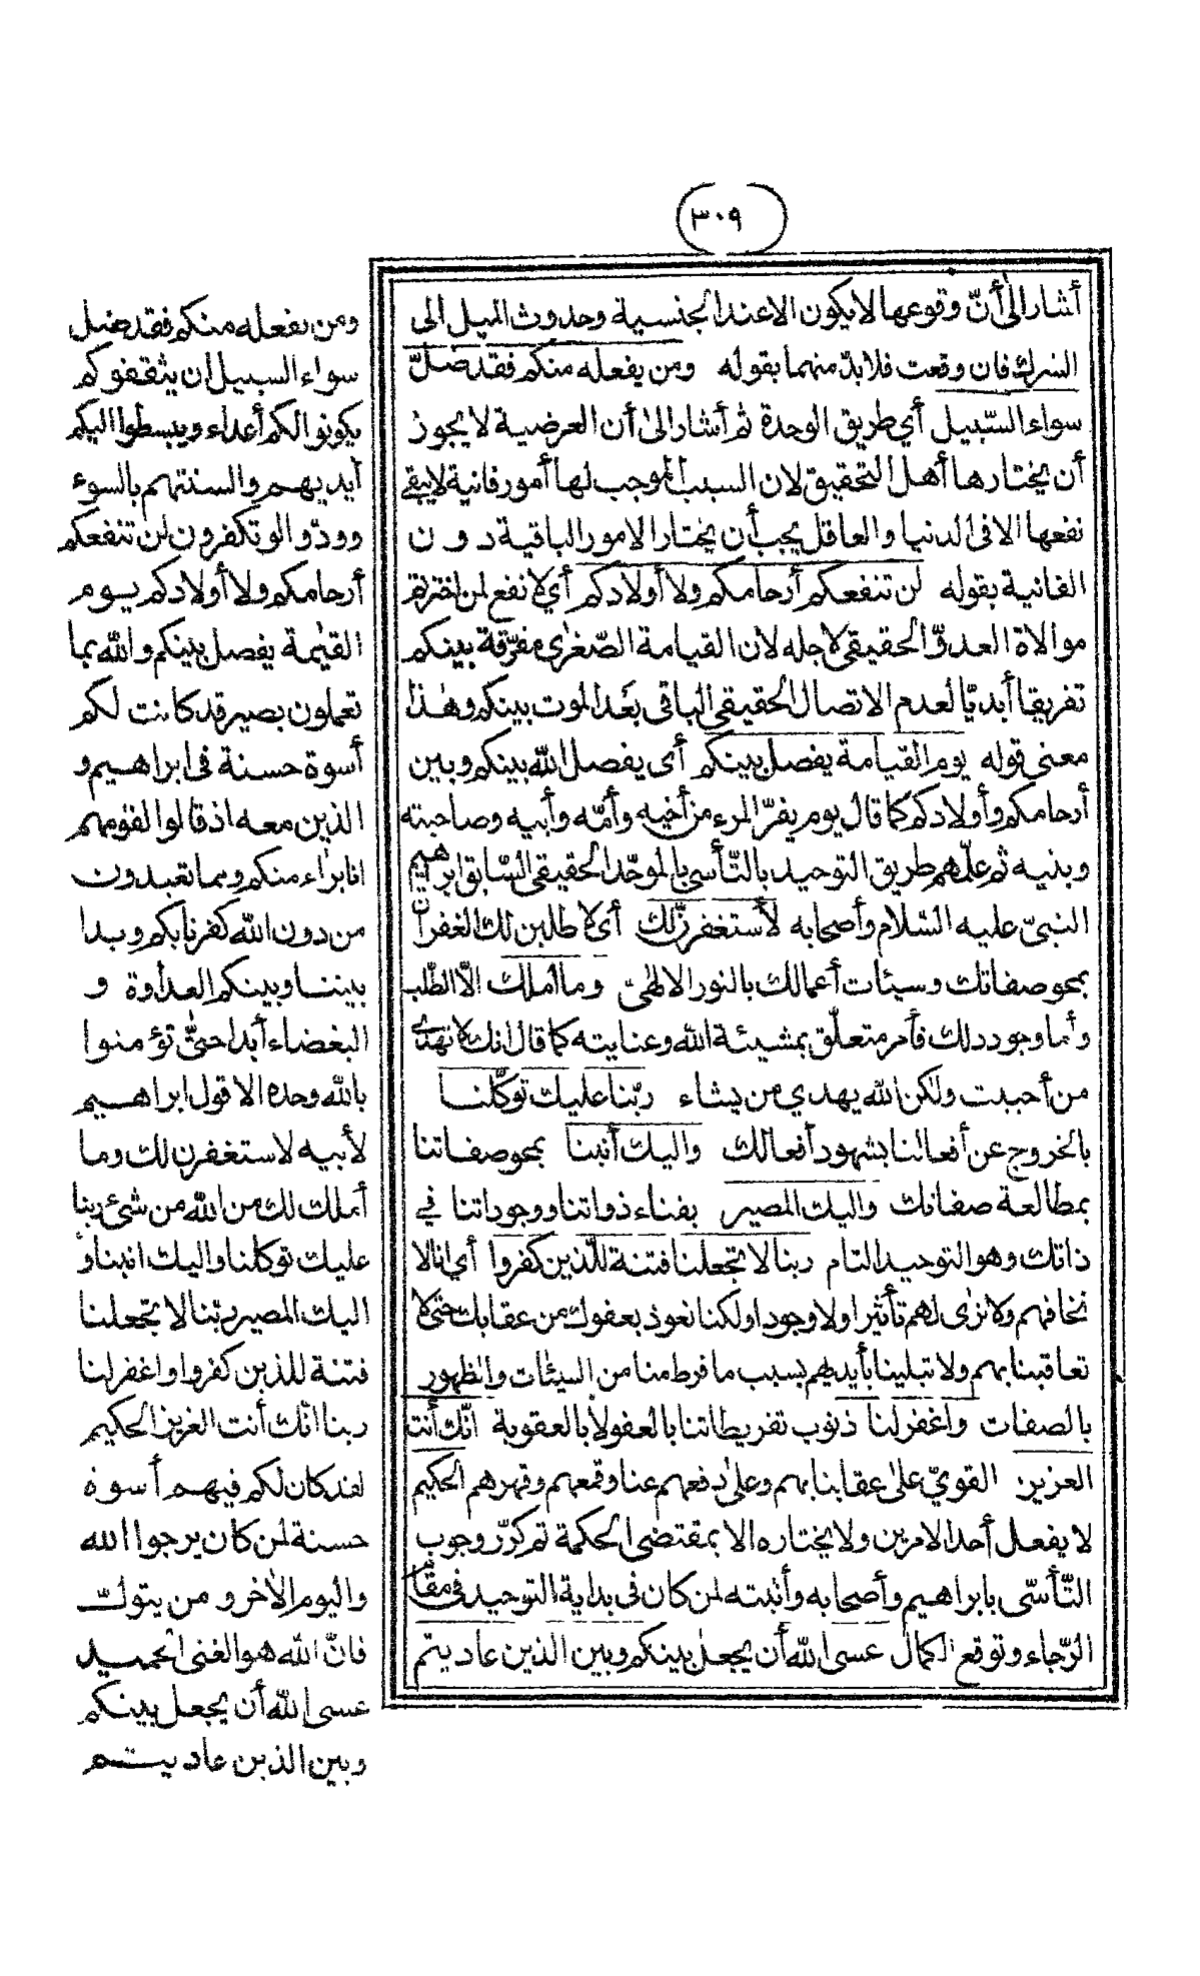 (٣٠٩)
أشار الىٰ أنّ وقوعها لا يكون الا عند الجنسية وحدوث الميل الى
الشرك فان وقعت فلا بدّ منهما بقوله ومن يفعله منكم فقد ضلّ
سواء السّبيل أي طريق الوحدة ثم أشار الىٰ أن العرضية لا يجوز
أن يختارها أهل التحقيق لان السبب الموجب لها أمور فانية لا يبقى
نفعها الا فى الدنيا والعاقل يجب أن يختار الامور الباقية دون
الفانية بقوله لن تنفعكم أرحامكم ولا أولادكم أي لا نفع لمن اخترتم
موالاة العدوّ الحقيقى لاجله لان القيامة الصّغرى مفرّقة بينكم
تفريقا أبديّا لعدم الاتصال الحقيقى الباقى بعد الموت بينكم وهٰذا
معنى قوله يوم القيامة يفصل بينكم أى يفصل الله بينكم وبين
أرحامكم وأولادكم كما قال يوم يفرّ المرء من أخيه وأمّه وأبيه وصاحبته
وبنيه ثم علّمهم طريق التوحيد بالتّأسي بالموحّد الحقيقى السّابق ابرٰهيم
النبىّ عليه السّلام وأصحابه لأستغفرنّ لك أى لا طلبن لك الغفران
بمحو صفاتك وسيئات أعمالك بالنور الالهىّ وما أملك الّا الطّلب
وأما وجود ذلك فأمر متعلّق بمشيئة الله وعنايته كما قال انك لا تهدى
من أحببت ولٰكن الله يهدي من يشاء ربّنا عليك توكّلنا
بالخروج عن أفعالنا بشهود أفعالك واليك أنبنا بمحو صفاتنا
بمطالعة صفاتك واليك المصير بفناء ذواتنا ووجوداتنا في
ذاتك وهو التوحيد التام ربنا لا تجعلنا فتنة للّذين كفروا أي انا لا
نخافهم ولا نرٰى لهم تأثيرا ولا وجودا ولكنا نعوذ بعفوك من عقابك حتى لا
تعاقبنا بهم ولا تبلينا بأيديهم بسبب ما فرط منا من السيئات والظهور
بالصفات واغفر لنا ذنوب تفريطاتنا بالعفو لا بالعقوبة انّك أنت
العزيز القويّ علىٰ عقابنا بهم وعلىٰ دفعهم عنا وقمعهم وقهرهم الحكيم
لا يفعل أحد الامرين ولا يختاره الا بمقتضى الحكمة ثم كرّر وجوب
التّأسّى بابراهيم وأصحابه وأثبته لمن كان فى بداية التوحيد فى مقام
الرّجاء وتوقع الكمال عسى الله أن يجعل بينكم وبين الذين عاديتم
ومن يفعله منكم فقد ضل
سواء السبيل ان يثقفوكم
يكونوا لكم أعداء ويبسطوا اليكم
أيديهم والسنتهم بالسوء
وودّوا لو تكفرون لن تنفعكم
أرحامكم ولا أولادكم يوم
القيٰمة يفصل بينكم والله بما
تعملون بصير قد كانت لكم
أسوة حسنة فى ابراهيم و
الذين معه اذ قالوا لقومهم
انا برٰاء منكم ومما تعبدون
من دون الله كفرنا بكم وبدا
بيننا وبينكم العداوة و
البغضاء أبدا حتىّٰ تؤمنوا
بالله وحده الا قول ابراهيم
لأبيه لاستغفرن لك وما
أملك لك من الله من شئ ربنا
عليك توكلنا واليك انبنا و
اليك المصير ربّنا لا تجعلنا
فتنة للذين كفروا واغفر لنا
ربنا انّك أنت العزيز الحكيم
لقد كان لكم فيهم أسوة
حسنة لمن كان يرجوا الله
واليوم الاٰخر ومن يتولّ
فانّ الله هو الغنى الحميد
عسى الله أن يجعل بينكم
وبين الذين عاديتم